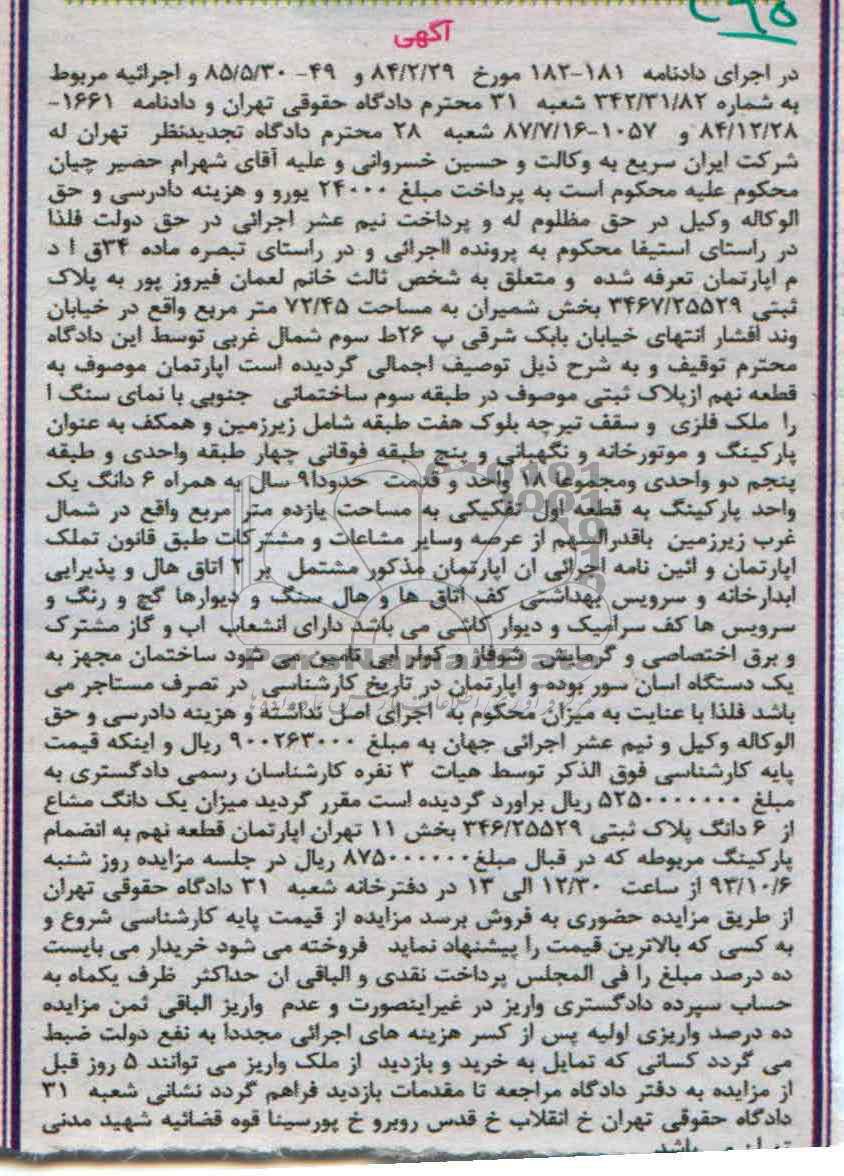 آگهی
در اجرای دادنامه ۱۸۱-۱۸۲ مورخ ۸۴/۲/۲۹ و ۴۹- ۸۵/۵/۳۰ و اجرائیه مربوط
به شماره ۳۴۲/۳۱/۸۲ شعبه ۳۱ محترم دادگاه حقوقی تهران و دادنامه ۱۶۶۱-
۸۴/۱۲/۲۸ و ۱۰۵۷-۸۷/۷/۱۶ شعبه ۲۸ محترم دادگاه تجدیدنظر تهران له
شرکت ایران سریع به وکالت و حسین خسروانی و علیه آقای شهرام حضیر چیان
محکوم علیه محکوم است به پرداخت مبلغ ۲۴۰۰۰ یورو و هزینه دادرسی و حق
الوکاله وکیل در حق مظلوم له و پرداخت نیم عشر اجرائی در حق دولت فلذا
در راستای استیفا محکوم به پرونده ااجرائی و در راستای تبصره ماده ۳۴ق ا د
م اپارتمان تعرفه شده و متعلق به شخص ثالث خانم لعمان فیروز پور به پلاک
ثبتی ۳۴۶۷/۲۵۵۲۹ بخش شمیران به مساحت ۷۲/۴۵ متر مربع واقع در خیابان
وند افشار انتهای خیابان بابک شرقی پ ۲۶ط سوم شمال غربی توسط این دادگاه
محترم توقیف و به شرح ذیل توصیف اجمالی گردیده است اپارتمان موصوف به
قطعه نهم ازپلاک ثبتی موصوف در طبقه سوم ساختمانی جنوبی با نمای سنگ ا
را ملک فلزی و سقف تیرچه بلوک هفت طبقه شامل زیرزمین و همکف به عنوان
پارکینگ و موتورخانه و نگهبانی و پنج طبقه فوقانی چهار طبقه واحدی و طبقه
پنجم دو واحدی ومجموعا ۱۸ واحد و قدمت حدودا۹ سال به همراه ۶ دانگ یک
واحد پارکینگ به قطعه اول تفکیکی به مساحت یازده متر مربع واقع در شمال
غرب زیرزمین باقدرالسهم از عرصه وسایر مشاعات و مشترکات طبق قانون تملک
اپارتمان و ائین نامه اجرائی ان اپارتمان مذکور مشتمل بر ۲ اتاق هال و پذیرایی
ابدارخانه و سرویس بهداشتی کف اتاق ها و هال سنگ و دیوارها گچ و رنگ و
سرویس ها کف سرامیک و دیوار کاشی می باشد دارای انشعاب اب و گاز مشترک
و برق اختصاصی و گرمایش شوفاژ و کولر ابی تامین می شود ساختمان مجهز به
یک دستگاه اسان سور بوده و اپارتمان در تاریخ کارشناسی در تصرف مستاجر می
باشد فلذا با عنایت به میزان محکوم به اجرای اصل نداشته و هزینه دادرسی و حق
الوکاله وکیل و نیم عشر اجرائی جهان به مبلغ ۹۰۰۲۶۳۰۰۰ ریال و اینکه قیمت
پایه کارشناسی فوق الذکر توسط هیات ۳ نفره کارشناسان رسمی دادگستری به
مبلغ ۵۲۵۰۰۰۰۰۰۰ ریال براورد گردیده است مقرر گردید میزان یک دانگ مشاع
از ۶ دانگ پلاک ثبتی ۳۴۶/۲۵۵۲۹ بخش ۱۱ تهران اپارتمان قطعه نهم به انضمام
پارکینگ مربوطه که در قبال مبلغ۸۷۵۰۰۰۰۰۰ ریال در جلسه مزایده روز شنبه
۹۳/۱۰/۶ از ساعت ۱۲/۳۰ الی ۱۳ در دفترخانه شعبه ۳۱ دادگاه حقوقی تهران
از طریق مزایده حضوری به فروش برسد مزایده از قیمت پایه کارشناسی شروع و
به کسی که بالاترین قیمت را پیشنهاد نماید فروخته می شود خریدار می بایست
ده درصد مبلغ را فی المجلس پرداخت نقدی و الباقی ان حداکثر ظرف یکماه به
حساب سپرده دادگستری واریز در غیراینصورت و عدم واریز الباقی ثمن مزایده
ده درصد واریزی اولیه پس از کسر هزینه های اجرائی مجددا به نفع دولت ضبط
می گردد کسانی که تمایل به خرید و بازدید از ملک واریز می توانند ۵ روز قبل
از مزایده به دفتر دادگاه مراجعه تا مقدمات بازدید فراهم گردد نشانی شعبه ۳۱
دادگاه حقوقی تهران خ انقلاب خ قدس روبرو خ پورسینا قوه قضائیه شهید مدنی
ParsNamadData